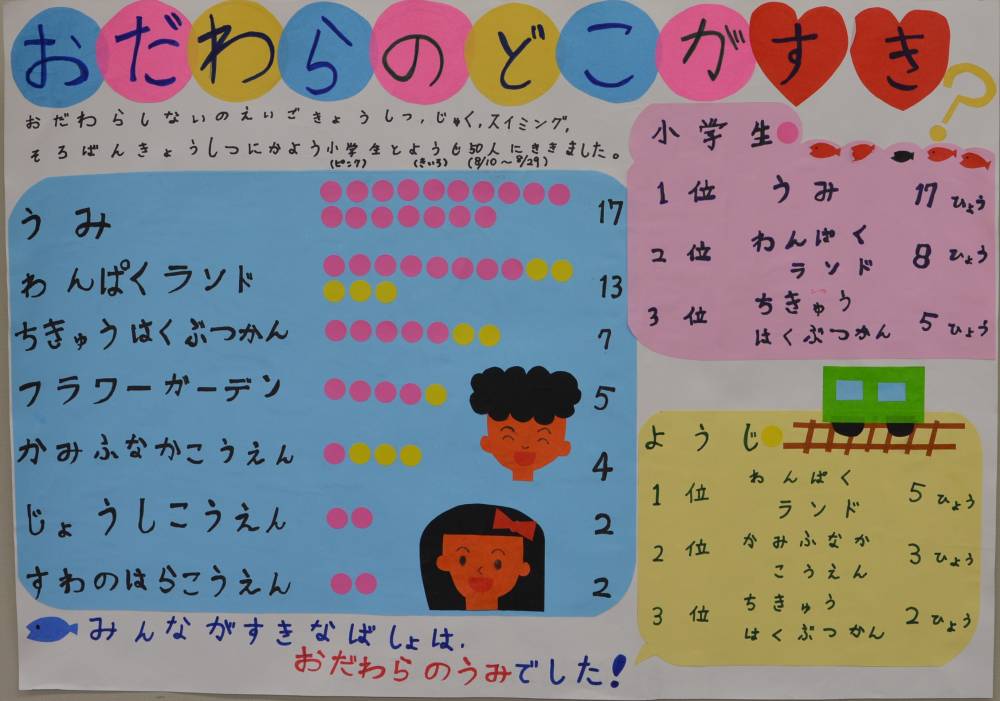 おだわらのどこがすき?
おだわらしないのえいごきょうしつ,じゅく,スイミング,
そろばんきょうしつにかよう小学生とようじ50人にききました。
(ピンク) (きいろ) (8/10〜8/29)
うみ 17
わんぱくランド 13
ちきゅうはくぶつかん 7
フラワーガーデン 5
かみふなかこうえん 4
じょうしこうえん 2
すわのはらこうえん 2
みんながすきなばしょは,
おだわらのうみでした!
小学生
1位 うみ 17ひょう
2位 わんぱく
ランド 8ひょう
3位 ちきゅう
はくぶつかん 5ひょう
ようじ
1位 わんぱく
ランド 5ひょう
2位 かみふなか
こうえん 3ひょう
3位 ちきゅう
はくぶつかん 2ひょう